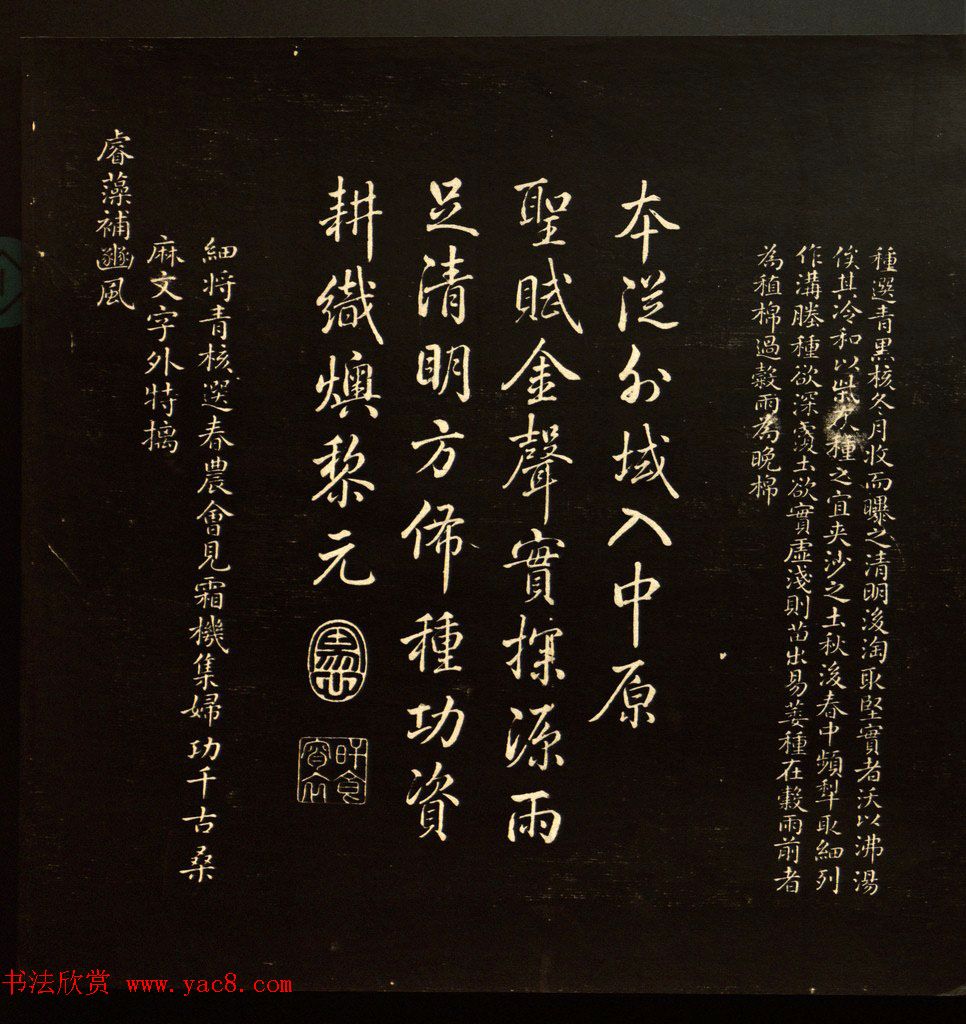 種選青黑核冬月收而曝之清明後淘取堅實者沃以沸湯
俟其冷和以柴灰種之宜夾沙之土秋後春中頻犁取細列
作溝塍種欲深覆土欲實虛淺則苗出易萎種在穀雨前者
為植棉過穀雨為晚棉
本從外域入中原
聖賦金聲實探源雨
足清明方佈種功資
耕織燠黎元
細將青核選春農會見霜機集婦功千古桑
麻文字外特摛
睿藻補豳風
书法欣赏 www.yac8.com